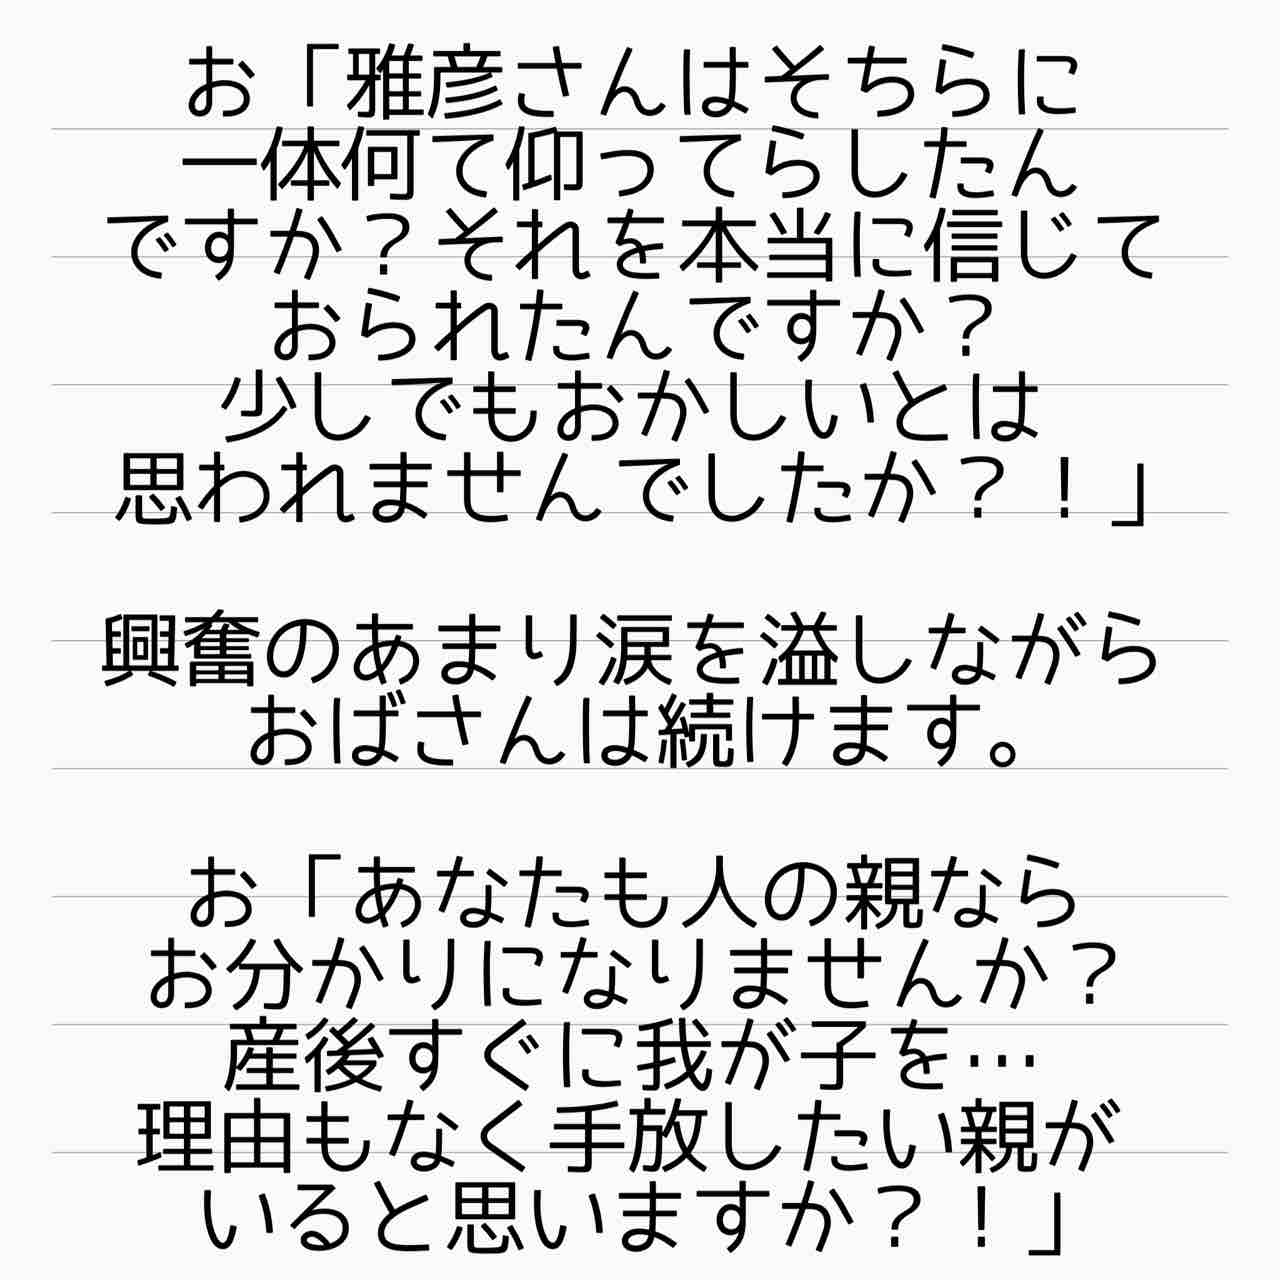 お「雅彦さんはそちらに
一体何て仰ってらしたん
ですか？それを本当に信じて
おられたんですか？
少しでもおかしいとは
思われませんでしたか？！」
興奮のあまり涙を溢しながら
おばさんは続けます。
お「あなたも人の親なら
お分かりになりませんか？
産後すぐに我が子を…
理由もなく手放したい親が
いると思いますか？！」